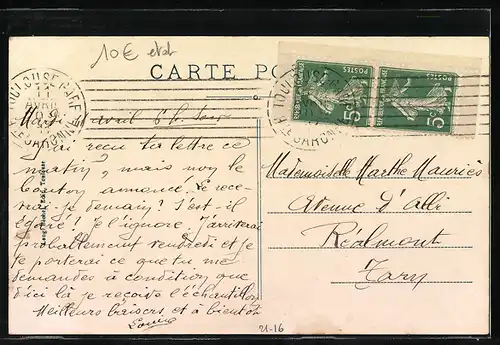 10€ etat
CARTE PO
TOULOUSE-GARE
AVRIL
Hte GARONNE
POSTES
5c
POSTES
5c
Mardi avril 6h. soir
J'ai reçu ta lettre ce
matin, mais non le
carton annoncé. Le rece-
vrai-je demain? S'est-il
égaré? Je l'ignore. J'arriverai
probablement vendredi et je
te porterai ce que tu me
demandes à condition que
d'ici là je reçoive l'échantillon
Meilleurs baisers et à bientôt
Louise
Mademoiselle Marthe Mauriès
Avenue d'Albi
Réalmont
Tarn
21-16